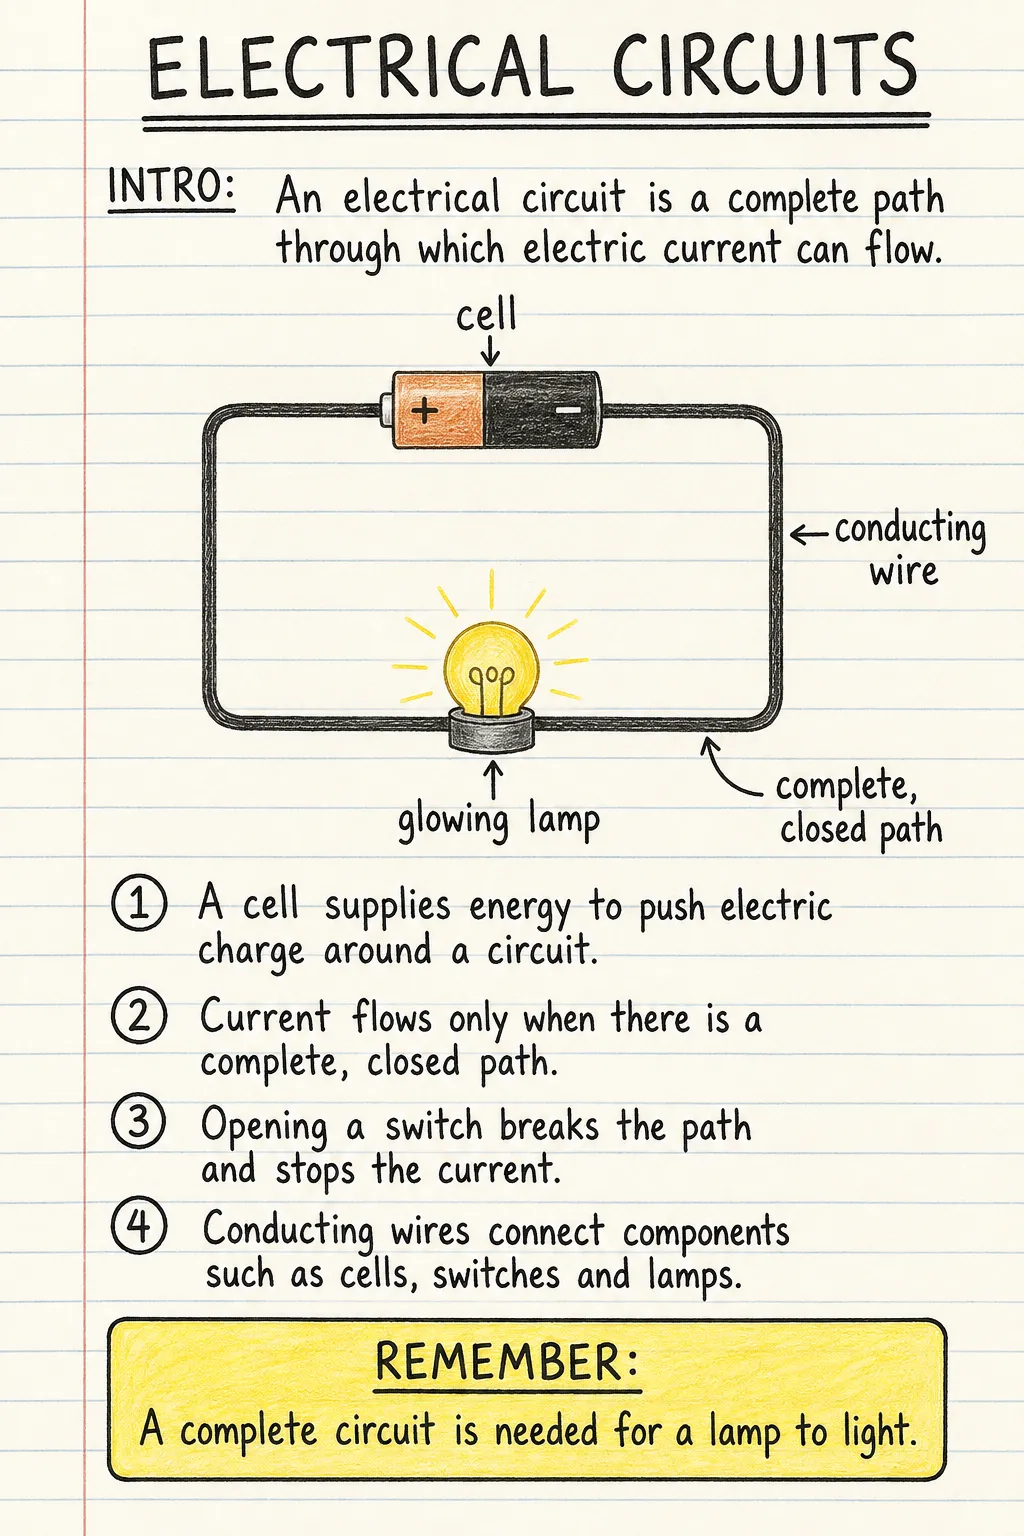 ELECTRICAL CIRCUITS
INTRO: An electrical circuit is a complete path
through which electric current can flow.
cell
+ −
conducting
wire
glowing lamp
complete,
closed path
1 A cell supplies energy to push electric
charge around a circuit.
2 Current flows only when there is a
complete, closed path.
3 Opening a switch breaks the path
and stops the current.
4 Conducting wires connect components
such as cells, switches and lamps.
REMEMBER:
A complete circuit is needed for a lamp to light.